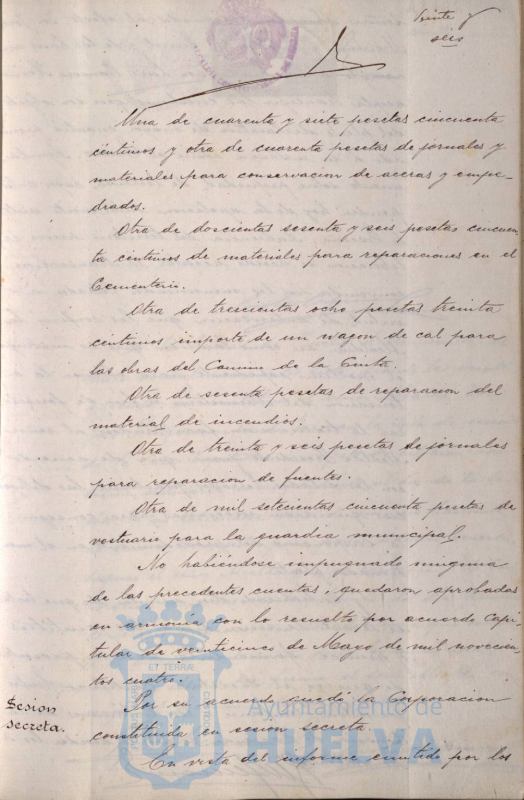 Veinte y
seis
Una de cuarenta y siete pesetas cincuenta
céntimos y otra de cuarenta pesetas de jornales y
materiales para conservacion de aceras y empe-
drados.
Otra de doscientas sesenta y seis pesetas cincuen-
ta céntimos de materiales para reparaciones en el
Cementerio.
Otra de trescientas ocho pesetas treinta
céntimos importe de un wagon de cal para
las obras del Camino de la Cinta.
Otra de sesenta pesetas de reparacion del
material de incendios.
Otra de treinta y seis pesetas de jornales
para reparacion de fuentes.
Otra de mil setecientas cincuenta pesetas de
vestuario para la guardia municipal.
No habiéndose impugnado ninguna
de las precedentes cuentas, quedaron aprobadas
en armonia con lo resuelto por acuerdo capi-
tular de veinticinco de Mayo de mil novecien-
tos cuatro.
Sesion
secreta.
Por su acuerdo quedó la Corporacion
constituida en sesion secreta
En vista del informe emitido por los
ET TERRÆ
Ayuntamiento de
HUELVA